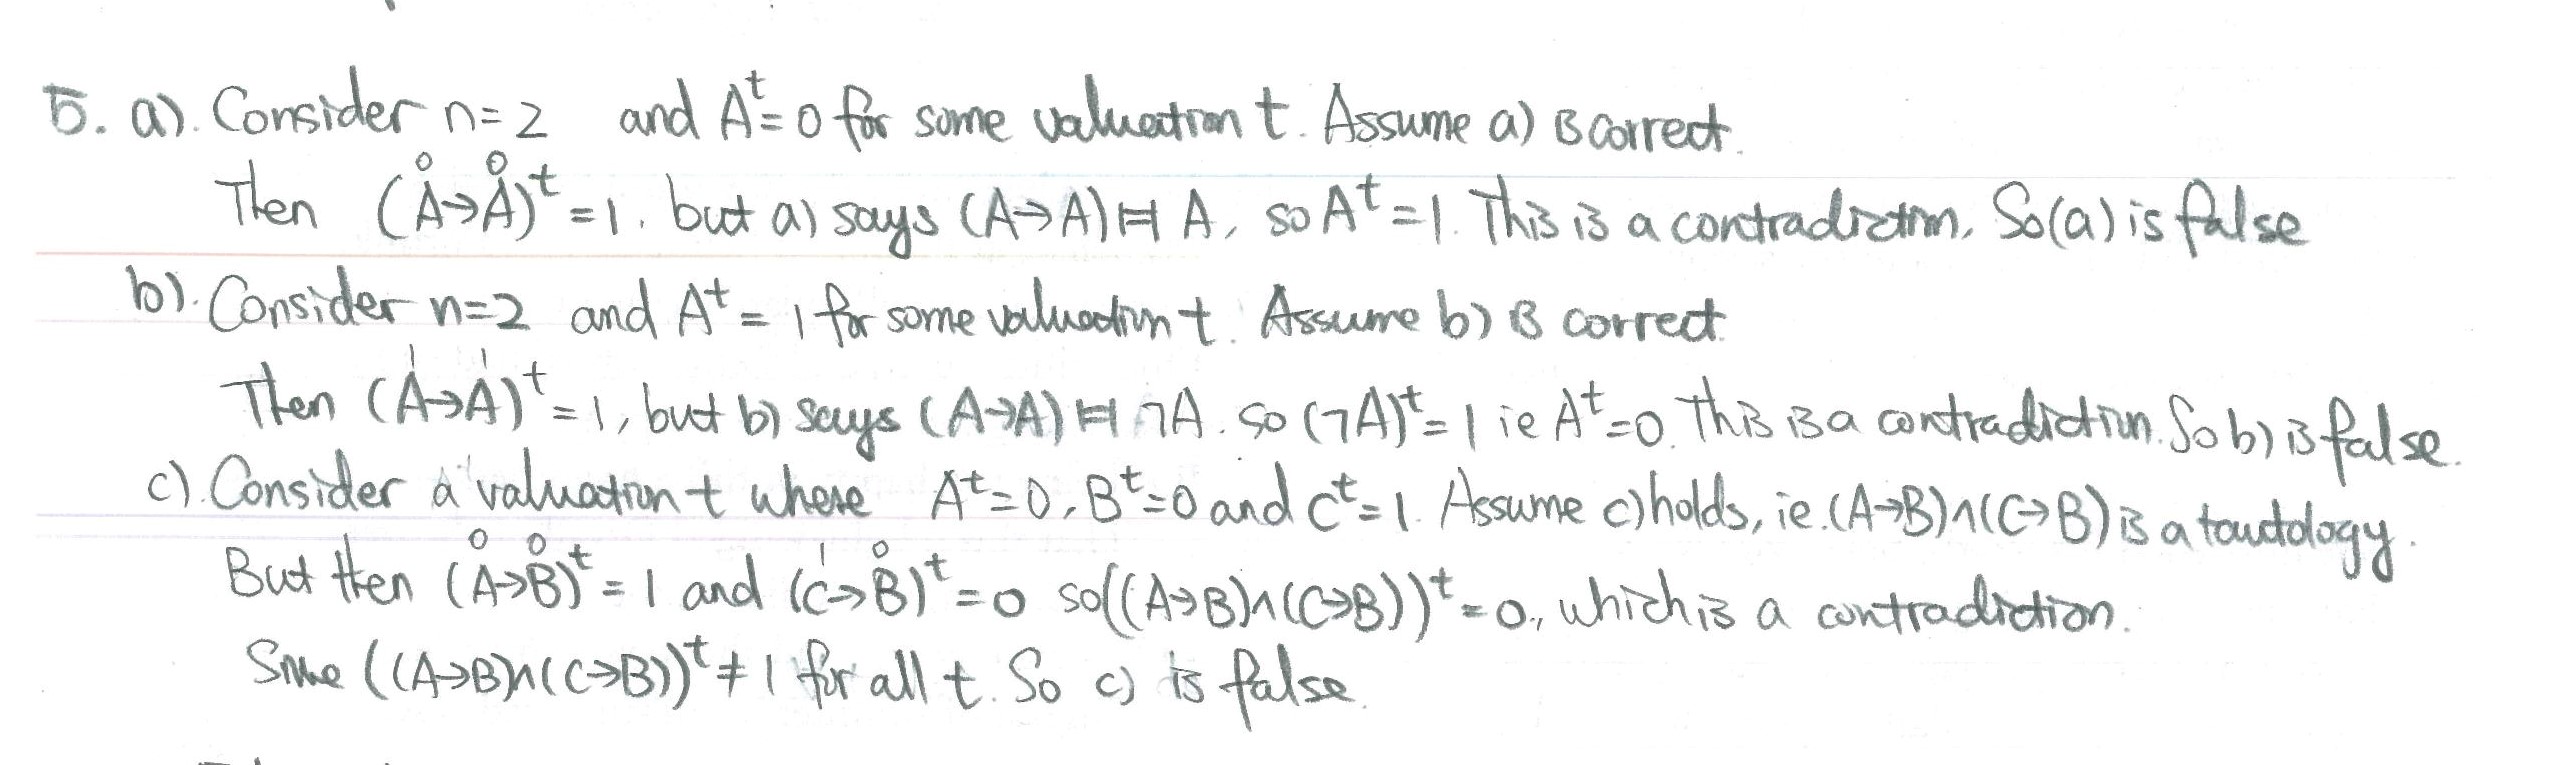 5. a). Consider n=2 and Aᵗ=0 for some valuation t. Assume a) is correct.
0 0
Then (A→A)ᵗ=1, but a) says (A→A) ⊨ A, so Aᵗ=1. This is a contradiction. So (a) is false
b). Consider n=2 and Aᵗ = 1 for some valuation t. Assume b) is correct
1 1
Then (A→A)ᵗ=1, but b) says (A→A) ⊨ ¬A. so (¬A)ᵗ=1 ie Aᵗ=0. This is a contradiction. So b) is false.
c). Consider a valuation t where Aᵗ=0, Bᵗ=0 and Cᵗ=1. Assume c) holds, ie. (A→B)∧(C→B) is a tautology.
0 0 1 0
But then (A→B)ᵗ=1 and (C→B)ᵗ=0 so ((A→B)∧(C→B))ᵗ=0, which is a contradiction.
Since ((A→B)∧(C→B))ᵗ≠1 for all t. So c) is false.